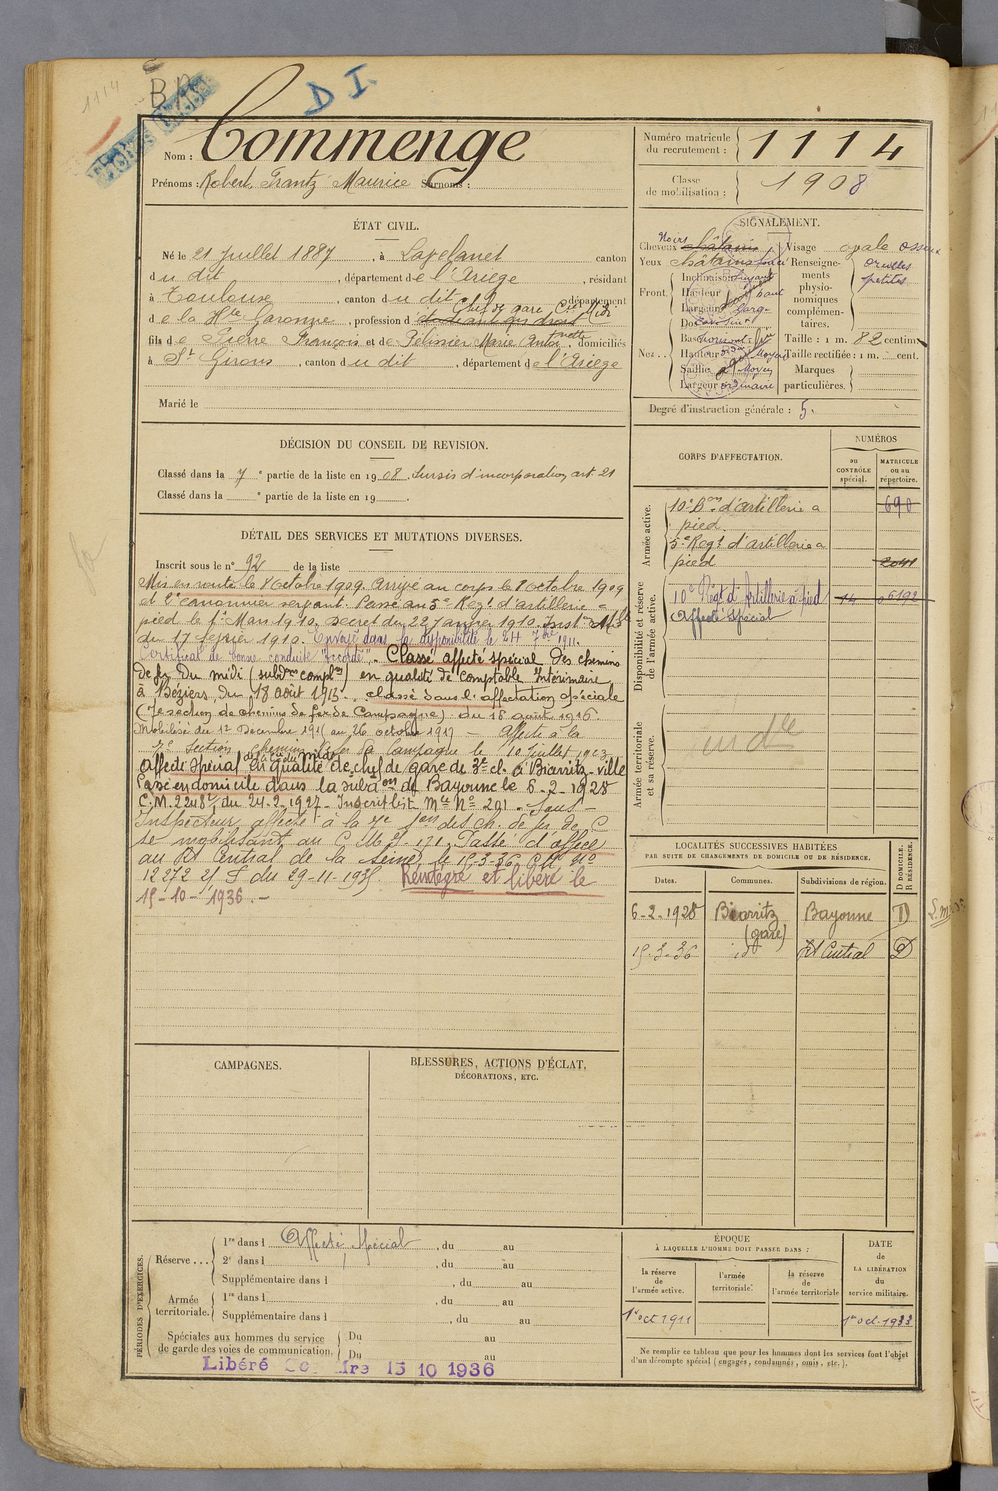 1114
D I
Nom : Commenge
Prénoms : Robert, Frantz Maurice Surnoms :
Numéro matricule
du recrutement : 1114
Classe
de mobilisation : 1908
ÉTAT CIVIL.
Né le 21 Juillet 1887, à Lavelanet canton
du dit, département de l'Ariège, résidant
à Toulouse, canton du dit, département
Chef de gare, Cie Midi
de la Hte Garonne, profession d étudiant en droit
fils de Pierre François et de Pélissier Marie Antoinette, domiciliés
à St Girons, canton du dit, département de l'Ariège
Marié le
SIGNALEMENT.
Noirs
Cheveux châtains Visage ovale osseux
Yeux châtains Renseigne-
ments
physio-
nomiques
complémen-
taires. oreilles
petites
Front. Inclinaison fuyant
Hauteur haut
Largeur larg
Nez . . Dos
Base
Hauteur Moyen
Saillie Moyen
Largeur ordinaire
Taille : 1 m. 82 centim.
Taille rectifiée : 1 m. cent.
Marques
particulières.
Degré d'instruction générale : 5.
DÉCISION DU CONSEIL DE REVISION.
Classé dans la 7e partie de la liste en 1908. Sursis d'incorporation art. 21
Classé dans la e partie de la liste en 19 .
CORPS D'AFFECTATION.
NUMÉROS
au
CONTRÔLE
spécial.
MATRICULE
ou au
répertoire.
Armée active.
10e Bon d'artillerie a
pied. 690
5e Regt d'artillerie a
pied 2041
Disponibilité et réserve
de l'armée active.
10e Regt d'Artillerie à pied 14 06192
Affecté Spécial
Armée territoriale
et sa réserve.
DÉTAIL DES SERVICES ET MUTATIONS DIVERSES.
Inscrit sous le n° 92 de la liste
Mis en route le 8 octobre 1909. Arrivé au corps le 8 octobre 1909
et 2e canonnier servant. Passé au 5e Regt d'artillerie a
pied le 1er Mars 1910. Décret du 22 Janvier 1910. Inston Mlle
du 17 février 1910. Envoyé dans la disponibilité le 24 7bre 1911.
Certificat de bonne conduite "Accordé". Classé affecté spécial des chemins
de fer du midi (subdons complres) en qualité de comptable Intérimaire
à Béziers, du 18 août 1915. classé dans l'affectation spéciale
(7e section de chemins de fer de Campagne) du 18 août 1916.
Mobilisé du 12 Décembre 1916 au 26 octobre 1917 — Affecté à la
7e section chemins de fer de Campagne le 10 juillet 1923
Affecté spécial de la Cie du Midi en qualité de chef de gare de 3e cl. à Biarritz-ville
Passé en domicile dans la subdon de Bayonne le 6-2-1928
C.M. 2248 du 24-2-1927 - Inscrit list Mle No 291. Sous-
Inspecteur affecté à la 7e Son des ch. de fer de C
se mobilisant au C M 171. Passé d'office
au Rt Central de la Seine, le 15-3-36 CM No
12272 du 29-11-1935. Réintégré et libéré le
15-10-1936.-
LOCALITÉS SUCCESSIVES HABITÉES
PAR SUITE DE CHANGEMENTS DE DOMICILE OU DE RÉSIDENCE.
Dates. Communes. Subdivisions de région. D DOMICILE.
R RÉSIDENCE.
6-2-1928 Biarritz
(gare) Bayonne D
15-3-36 id Rt Central D
CAMPAGNES.
BLESSURES, ACTIONS D'ÉCLAT,
DÉCORATIONS, ETC.
PÉRIODES D'EXERCICES.
Réserve . . . 1re dans l Affecté Spécial, du au
2e dans l , du au
Supplémentaire dans l , du au
Armée
territoriale. 1re dans l , du au
Supplémentaire dans l , du au
Spéciales aux hommes du service
de garde des voies de communication. Du au
Du au
Libéré 15 10 1936
ÉPOQUE
À LAQUELLE L'HOMME DOIT PASSER DANS :
la réserve
de
l'armée active.
l'armée
territoriale.
la réserve
de
l'armée territoriale
DATE
de
LA LIBÉRATION
du
service militaire.
1er oct 1911 1er oct. 1933
Ne remplir ce tableau que pour les hommes dont les services font l'objet
d'un décompte spécial (engagés, condamnés, omis, etc.).